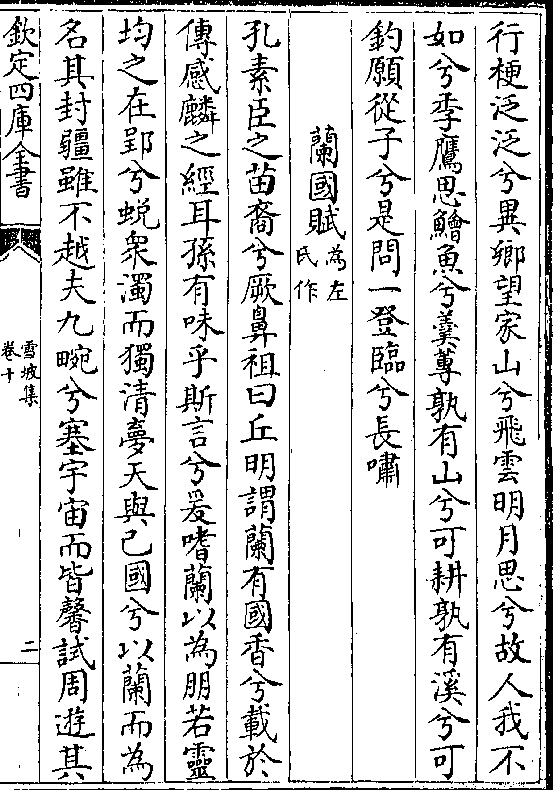 行梗泛泛兮異鄉望家山兮飛雲明月思兮故人我不
如兮季鷹思鱠魚兮羮蓴孰有山兮可耕孰有溪兮可
釣願從子兮是問一登臨兮長嘯
蘭國賦為左氏作
孔素臣之苗裔兮厥鼻祖曰丘明謂蘭有國香兮載於
傳感麟之經耳孫有味乎斯言兮爰嗜蘭以為朋若靈
均之在郢兮蛻衆濁而獨清夢天與己國兮以蘭而為
名其封疆雖不越夫九畹兮塞宇宙而皆馨試周遊其
欽定四庫全書
雪坡集
卷十
二